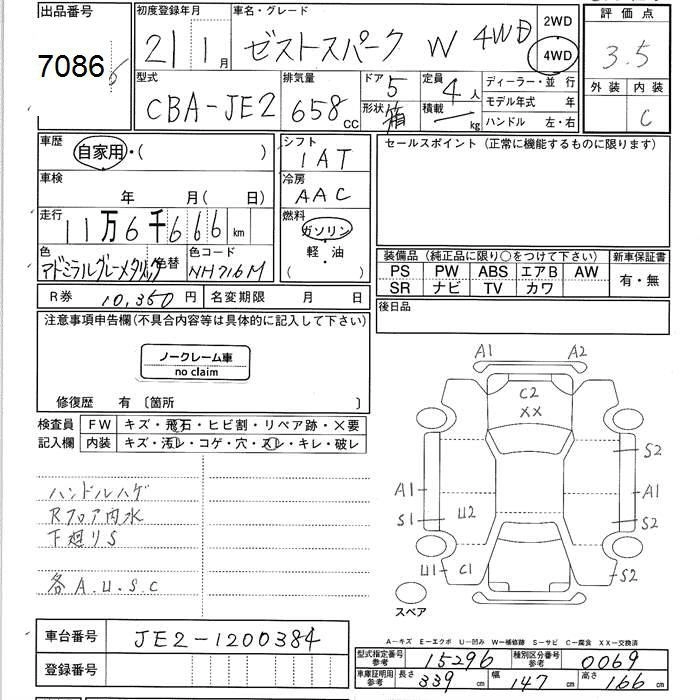 出品番号
7086
初度登録年月
21年 1月
車名・グレード
ゼストスパーク W 4WD
2WD
4WD
評価点
3.5
外装 内装
C
型式
CBA-JE2
排気量
658 cc
ドア 5
形状 箱
定員 4人
積載 ― kg
ディーラー・並行
モデル年式 年
ハンドル 左・右
車歴
自家用・( )
シフト
IAT
セールスポイント (正常に機能するものに限ります)
車検
年 月( 日)
冷房
AAC
走行
11万6千666 km
燃料
ガソリン
軽・油
( )
色
アドミラルグレーメタリック
色替
色コード
NH716M
装備品 (純正品に限り○をつけて下さい)
新車保証書
PS PW ABS エアB AW
SR ナビ TV カワ
有・無
R券 10,350円
名変期限 月 日
後日品
注意事項申告欄(不具合内容等は具体的に記入して下さい)
ノークレーム車
no claim
修復歴 有 〔箇所 〕
検査員
記入欄
FW キズ・飛石・ヒビ割・リペア跡・×要
内装 キズ・汚レ・コゲ・穴・スレ・キレ・破レ
ハンドルハゲ
Rフロア内水
下廻りS
各A.U.S.C
A1 A2
C2
XX
S2
A1 A1
S1 U2 S2
U1 C1 S2
スペア
車台番号 JE2-1200384
登録番号
A―キズ E―エクボ U―凹み W―補修跡 S―サビ C―腐食 XX―交換済
型式指定番号
参考
15296
種別区分番号
参考
0069
車庫証明用
参考
長さ 339 cm 幅 147 cm 高さ 166 cm